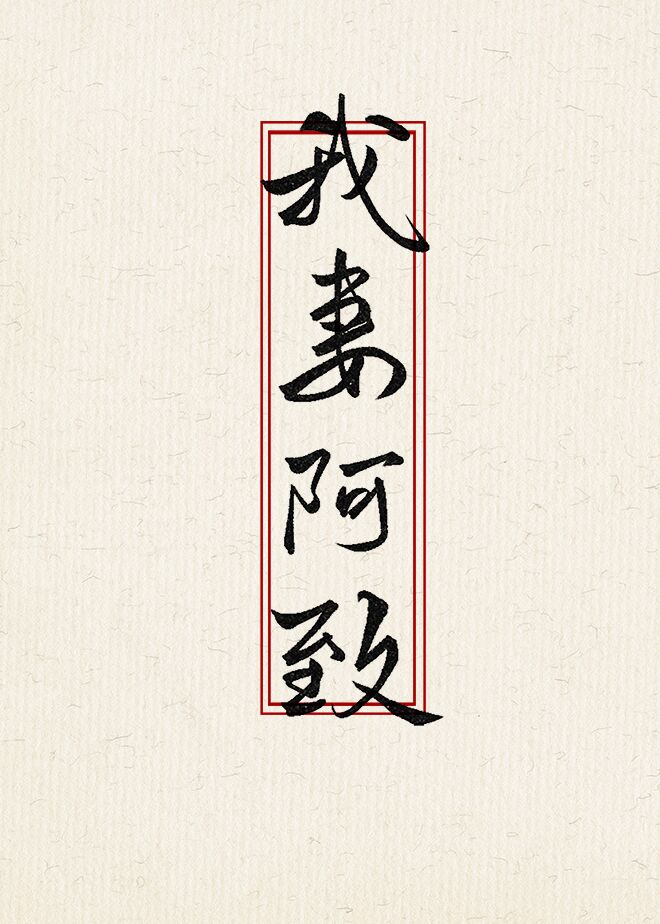 我妻阿致